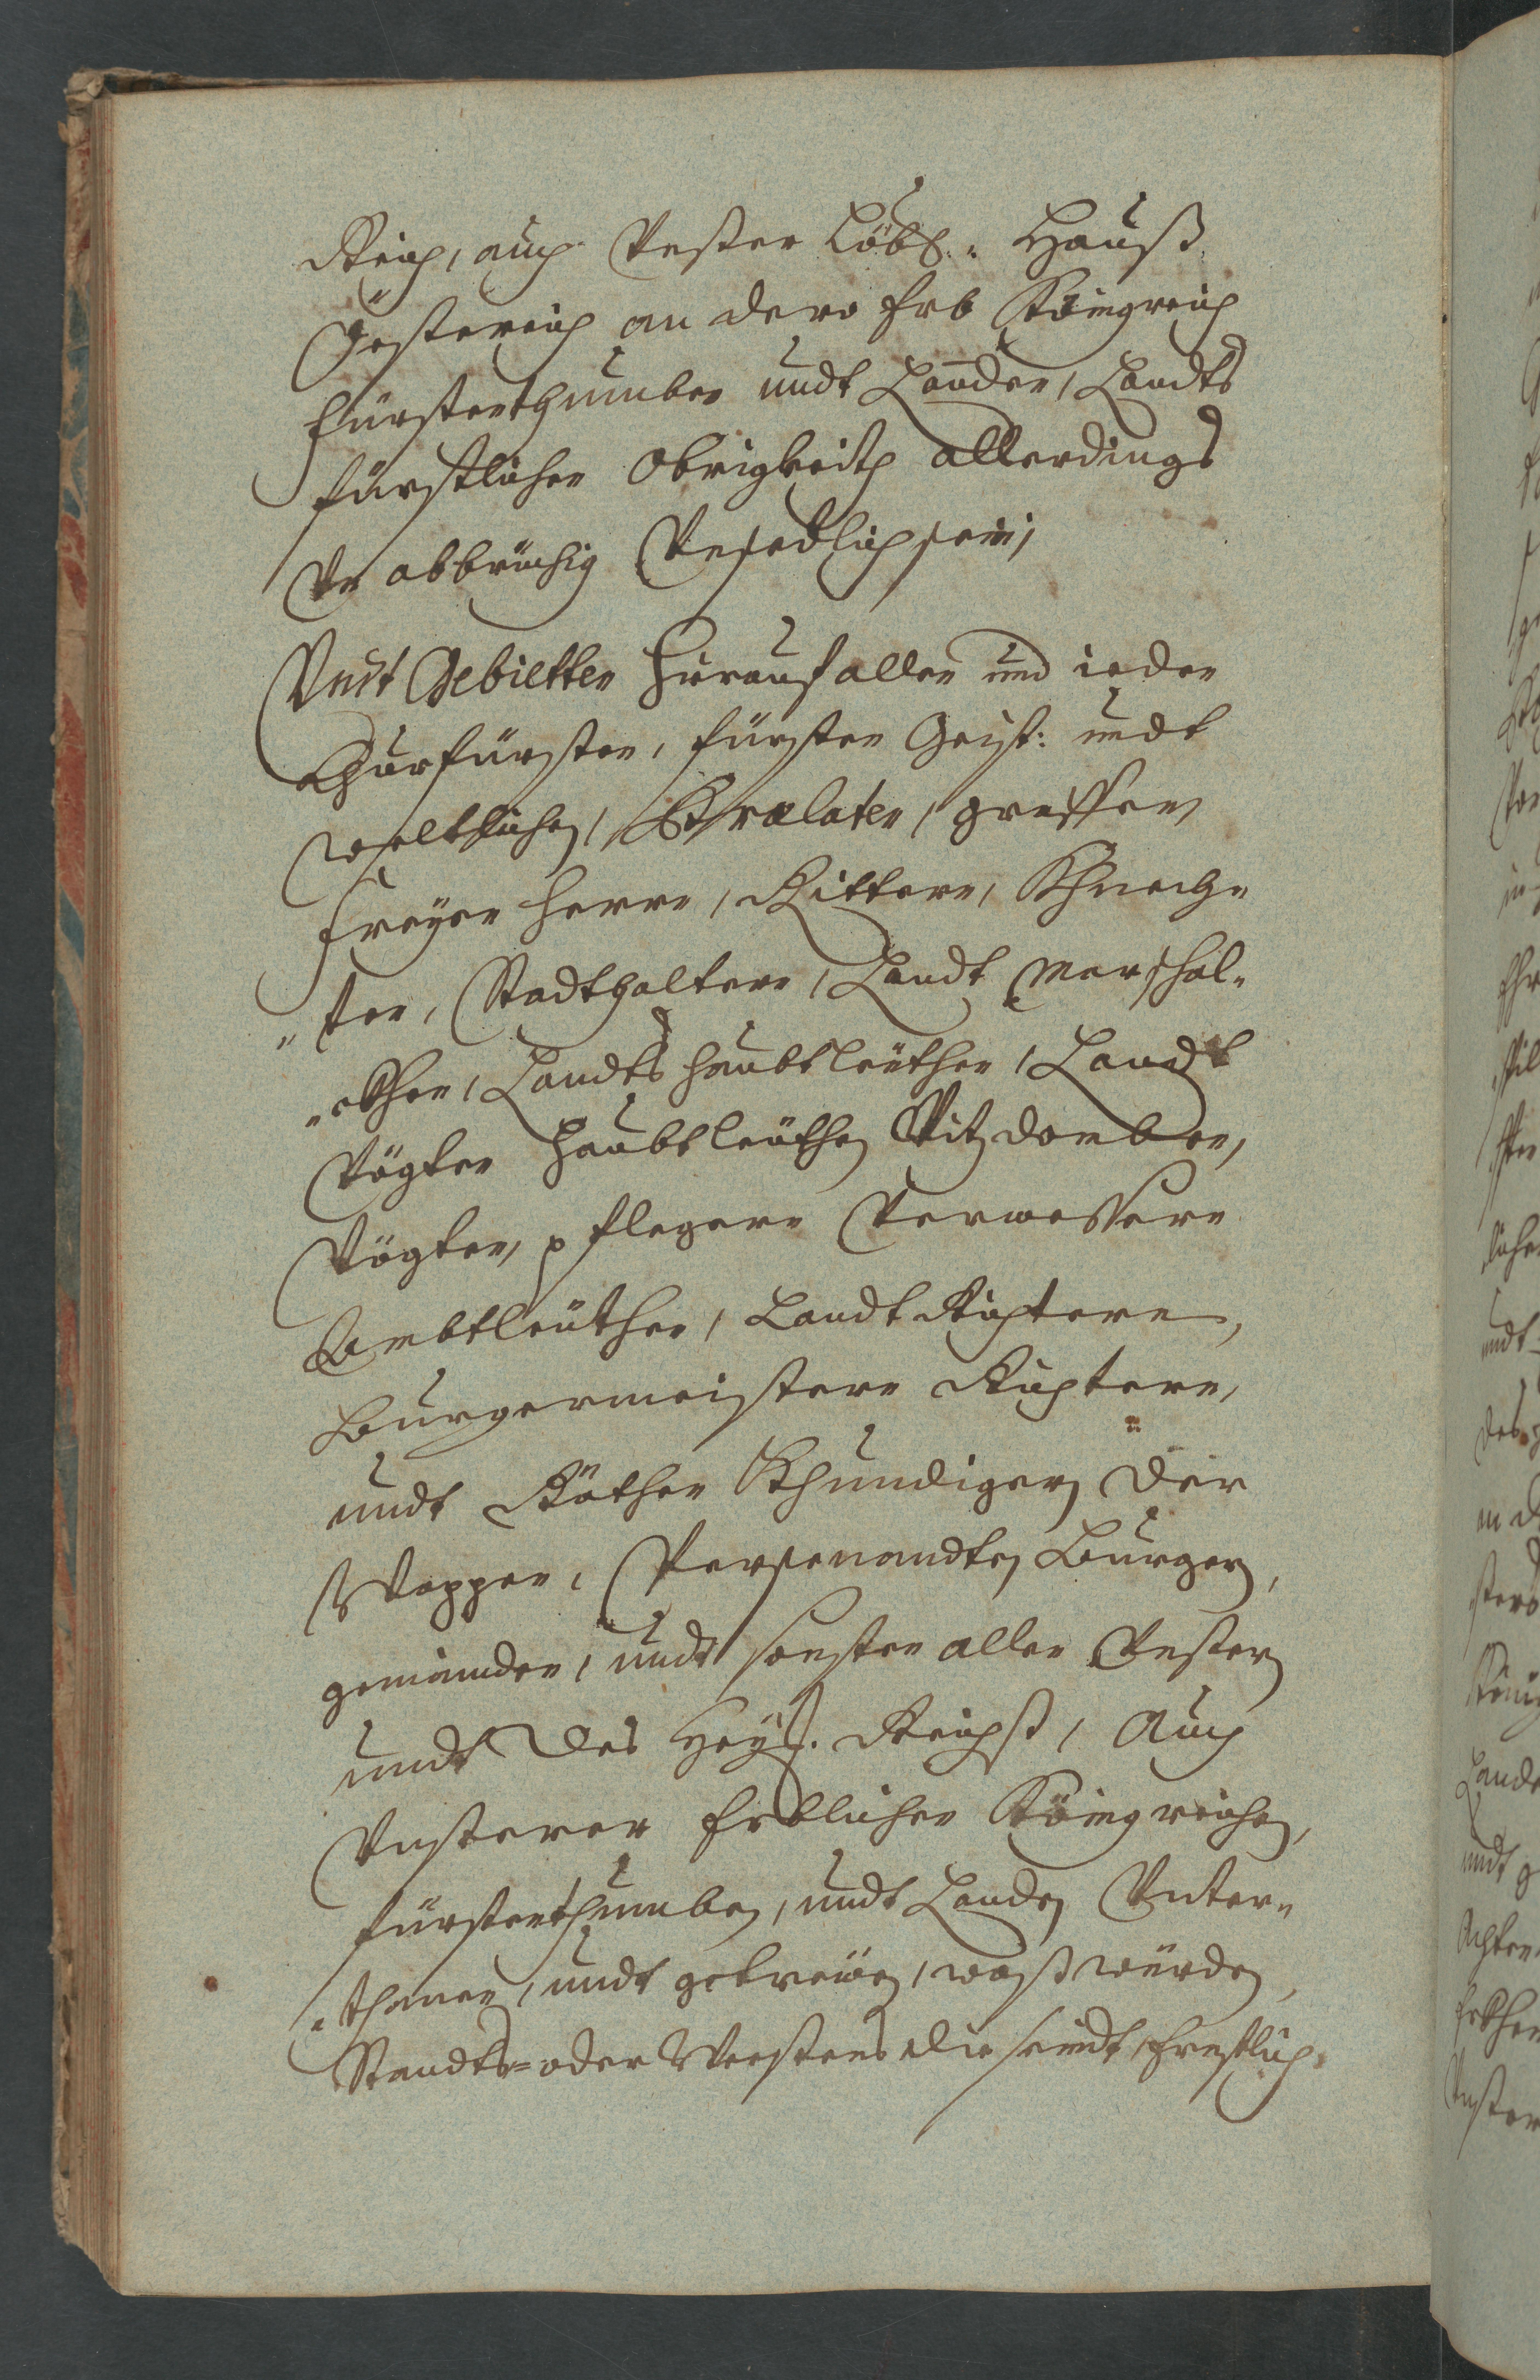 Reich, auch Vnßer Löbl: Hauß
Össterreich an dero Erb Königreich
Fürstenthumben undt Landen, Landts
fürstlicher Obrigkeith allerdings
Vnabbrüchig Vnschedlich sein,
Vndt Gebietten hierauf allen und ieden
Churfürsten, Fürsten Geist: undt
weltlichen, Prælaten, graffen,
Freyen Herrn, Rittern, Khnech„
„ten, Stadthaltern, Landt Marschal„
„ckhen, Landts haubtleuthen, Landt
Vögten Haubtleüthen Vitzdomben,
Vögten, pflegern Verwessern
Ambtleüthen, Landt Richtern,
Burgermeistern Richtern,
undt Räthen Khundigern der
Wappen, Persevandten Burgern,
gemeinden, undt sonsten allen Vnßern
undt des Heyl. Reichß, Auch
Vnßerer Erblichen Königreichen,
Fürstenthumben, undt Landen Vnter„
„thanen, undt getreüen, waß würden,
Standts= oder Weesens die seindt, Ernstlich